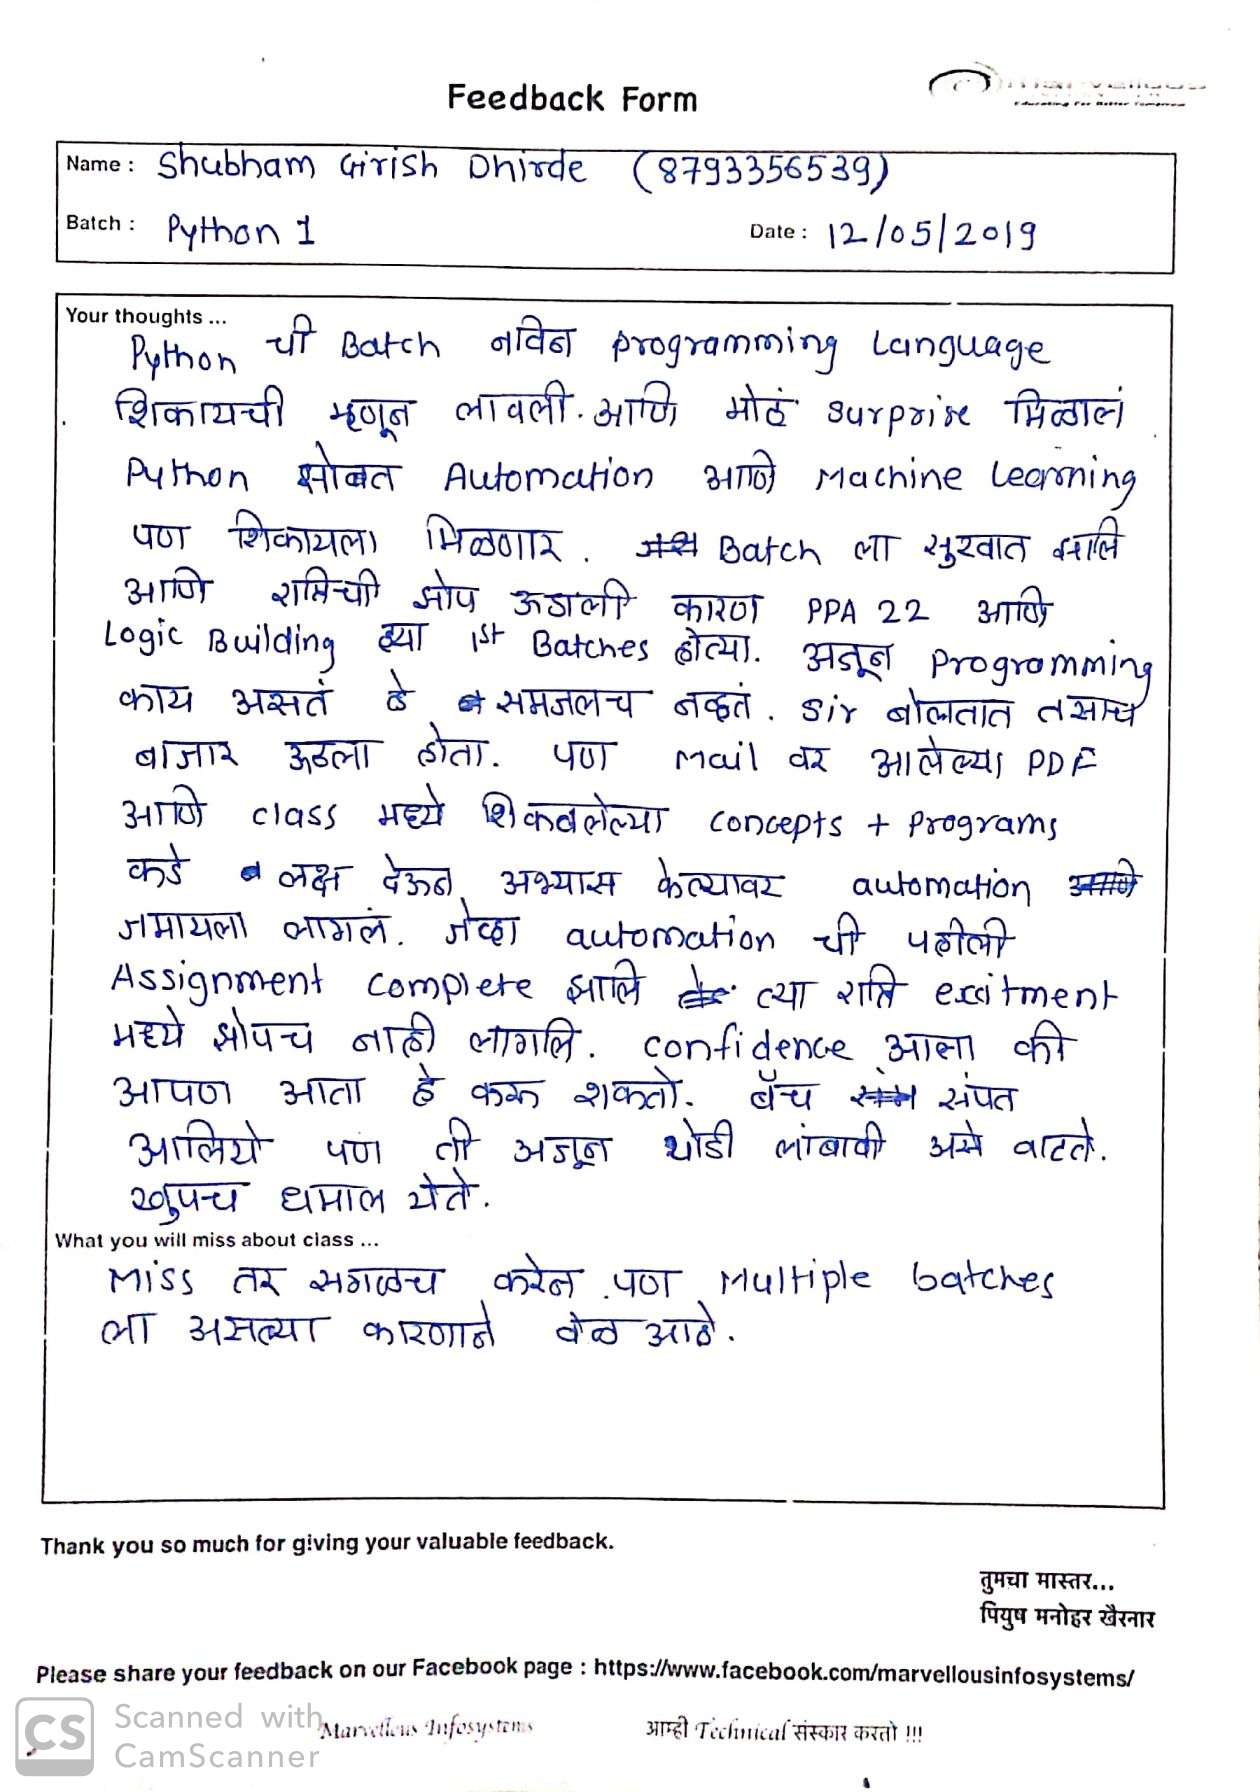 Feedback Form
Marvellous
Educating For Better Tomorrow
Name : Shubham Girish Dhirde (8793356539)
Batch : Python 1 Date : 12/05/2019
Your thoughts ...
Python ची Batch नविन programming Language
शिकायची म्हणून लावली. आणि मोठं surprise मिळालं
Python सोबत Automation आणि Machine Learning
पण शिकायला मिळणार. Batch ला सुरवात झालि
आणि रात्रिची झोप ऊडाली कारण PPA 22 आणि
Logic Building ह्या 1st Batches होत्या. अजून Programming
काय असतं हे समजलच नव्हतं. Sir बोलतात तसाच
बाजार ऊठला होता. पण Mail वर आलेल्या PDF
आणि class मध्ये शिकवलेल्या concepts + Programs
कडे लक्ष देऊन अभ्यास केल्यावर automation
जमायला लागलं. जेव्हा automation ची पहीली
Assignment complete झालि त्या रात्रि excitment
मध्ये झोपच नाही लागलि. confidence आला की
आपण आता हे करू शकतो. बॅच संपत
आलियो पण ती अजून थोडी लांबावी असे वाटते.
खुपच धमाल येते.
What you will miss about class ...
Miss तर सगळच करेन पण Multiple batches
ला असल्या कारणाने वेळ आहे.
Thank you so much for giving your valuable feedback.
तुमचा मास्तर...
पियुष मनोहर खैरनार
Please share your feedback on our Facebook page : https://www.facebook.com/marvellousinfosystems/
CS Scanned with CamScanner
Marvellous Infosystems आम्ही Technical संस्कार करतो !!!